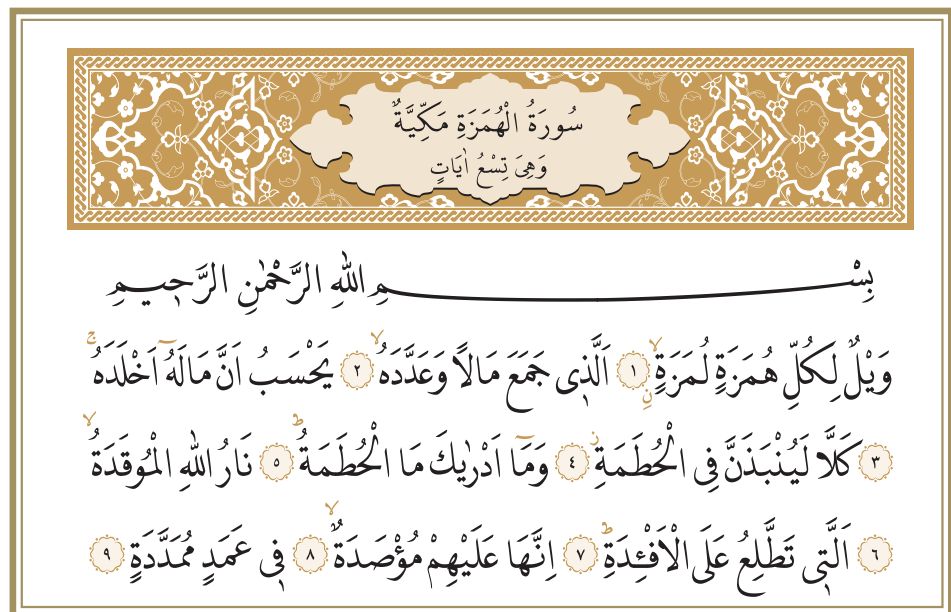 سُورَةُ الْهُمَزَةِ مَكِّيَّةٌ
وَهِىَ تِسْعُ اٰيَاتٍ
بِسْمِ اللّٰهِ الرَّحْمٰنِ الرَّح۪يمِ
وَيْلٌ لِكُلِّ هُمَزَةٍ لُمَزَةٍۙنِ ﴿١﴾ اَلَّذ۪ى جَمَعَ مَالًا وَعَدَّدَهُۙ ﴿٢﴾ يَحْسَبُ اَنَّ مَالَهُٓ اَخْلَدَهُۚ
﴿٣﴾ كَلَّا لَيُنْبَذَنَّ فِى الْحُطَمَةِۘ ﴿٤﴾ وَمَٓا اَدْرٰيكَ مَا الْحُطَمَةُۜ ﴿٥﴾ نَارُ اللّٰهِ الْمُوقَدَةُۙ
﴿٦﴾ اَلَّت۪ى تَطَّلِعُ عَلَى الْاَفْـِٔدَةِۜ ﴿٧﴾ اِنَّهَا عَلَيْهِمْ مُؤْصَدَةٌۙ ﴿٨﴾ ف۪ى عَمَدٍ مُمَدَّدَةٍ ﴿٩﴾